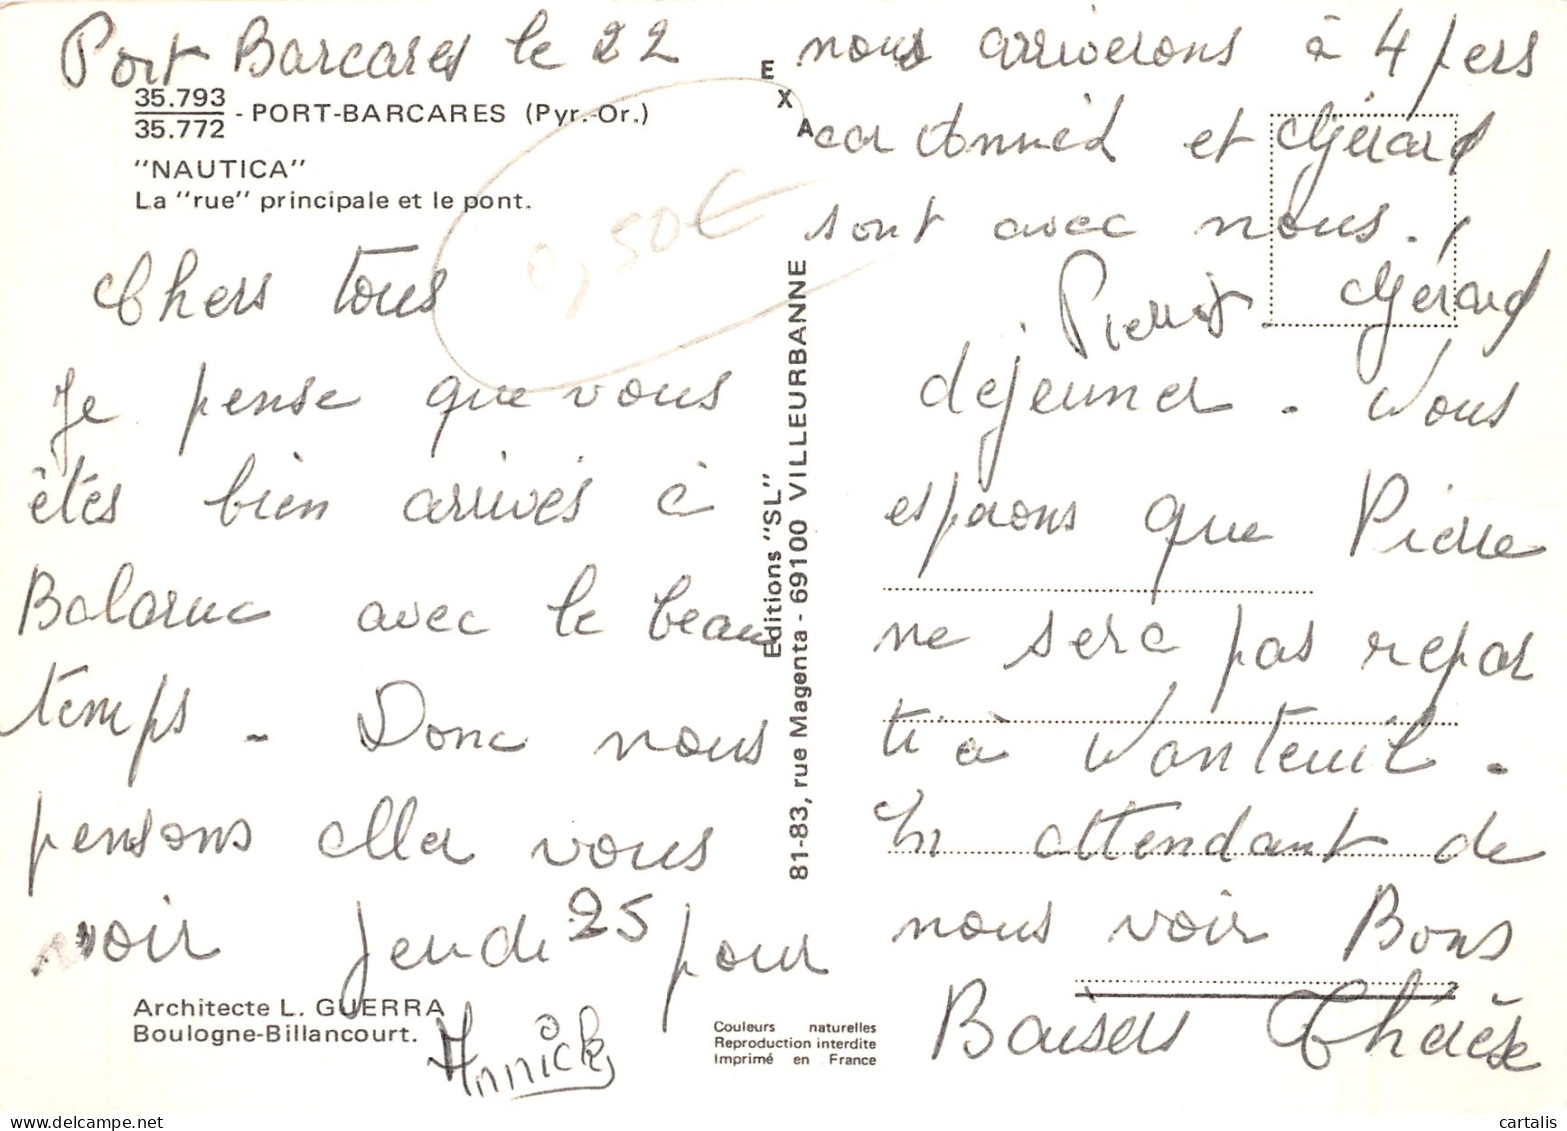 Port Barcares le 22
35.793
35.772 - PORT-BARCARES (Pyr.-Or.)
"NAUTICA"
La "rue" principale et le pont.
0,50€
Chers tous
Je pense que vous
êtes bien arrivés à
Balaruc avec le beau
temps. Donc nous
pensons aller vous
voir jeudi 25 pour
Architecte L. GUERRA
Boulogne-Billancourt.
Annick
EXA
Editions "SL"
81-83, rue Magenta - 69100 VILLEURBANNE
Couleurs naturelles
Reproduction interdite
Imprimé en France
déjeuner. Nous
esperons que Pierre
ne sera pas repar
ti à Nanteuil.
En attendant de
nous voir Bons
Baisers Thérèse
nous arriverons à 4 pers
car Annick et Gérard
sont avec nous.
Pierrot Gérard
cartalis